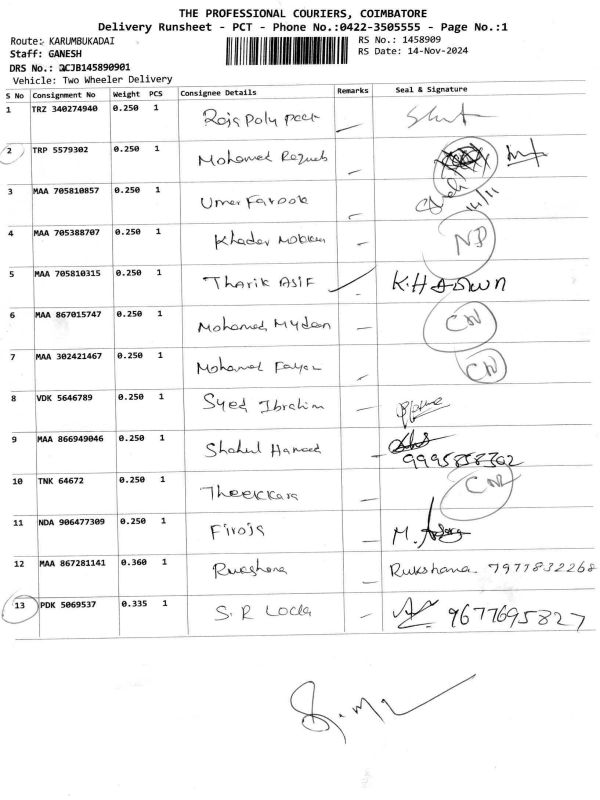 THE PROFESSIONAL COURIERS, COIMBATORE
Delivery Runsheet - PCT - Phone No.:0422-3505555 - Page No.:1
Route: KARUMBUKADAI RS No.: 1458909
Staff: GANESH RS Date: 14-Nov-2024
DRS No.: 2CJB145890901
Vehicle: Two Wheeler Delivery
S No Consignment No Weight PCS Consignee Details Remarks Seal & Signature
1 TRZ 340274940 0.250 1 Raja Poly Pack
2 TRP 5579302 0.250 1 Mohamed
3 MAA 705810857 0.250 1 Umer Farook 14/11
4 MAA 705388707 0.250 1 Khader
5 MAA 705810315 0.250 1 Tharik Asif
6 MAA 867015747 0.250 1 Mohamed Mydeen CN
7 MAA 302421467 0.250 1 Mohamed CN
8 VDK 5646789 0.250 1 Syed Ibrahim
9 MAA 866949046 0.250 1 Shahul Hameed 9995858362
10 TNK 64672 0.250 1 Theekkara
11 NDA 906477309 0.250 1 Firoja M.
12 MAA 867281141 0.360 1 Rukshana Rukshana. 7977832268
13 PDK 5069537 0.335 1 S. R 9677695827